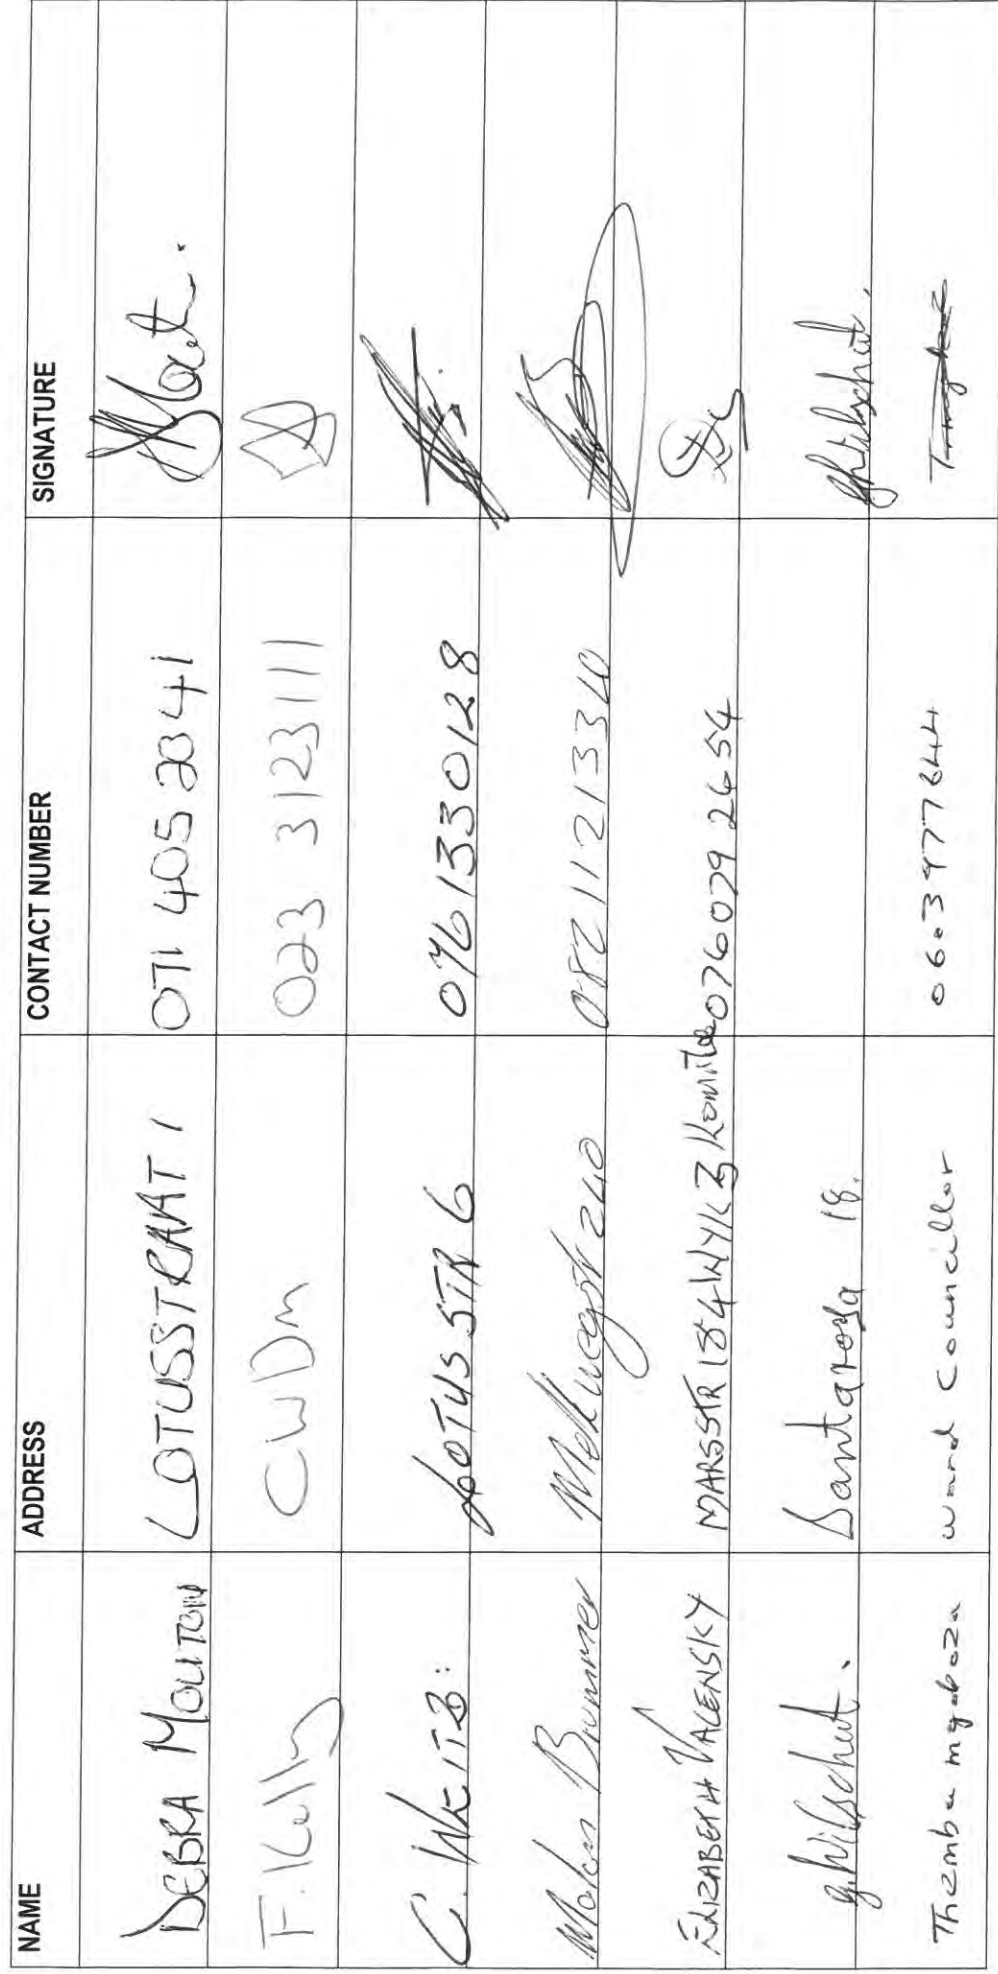 NAME ADDRESS CONTACT NUMBER SIGNATURE
DEBRA MOUTON LOTUSSTRAAT 1 071 405 2341
F. Kelly CWDM 023 3123111
C. WEITZ: LOTUS STR 6 0761330128
Bruwer Melkwegstr 240 0821121334
ELIZABETH VALENSKY MARSSTR 184 WYK 3 Komitee 076079 2454
g. Wilschut. Santarosa 18.
Themba mgoboza ward Councillor